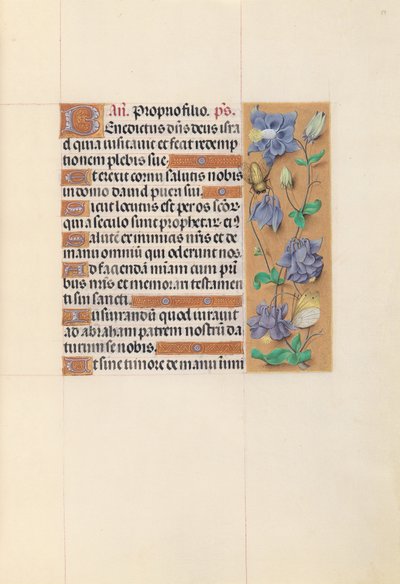 An̄. Proprio filio. ps.
Benedictus dn̄s deus isra
el quia visitauit et fecit redemp
tionem plebis sue.
Et erexit cornu salutis nobis
in domo dauid pueri sui.
Sicut locutus est per os sc̄or̄
qui a seculo sunt prophetar̄ eiꝰ
Salutē ex inimicis nr̄is et de
manu omniū qui oderunt nos.
Ad faciendā miam cum pri
bus nr̄is et memorari testamen
ti sui sancti.
Iusiurandū quod iurauit
ad abraham patrem nostrū da
turum se nobis.
Ut sine timore de manu inimi